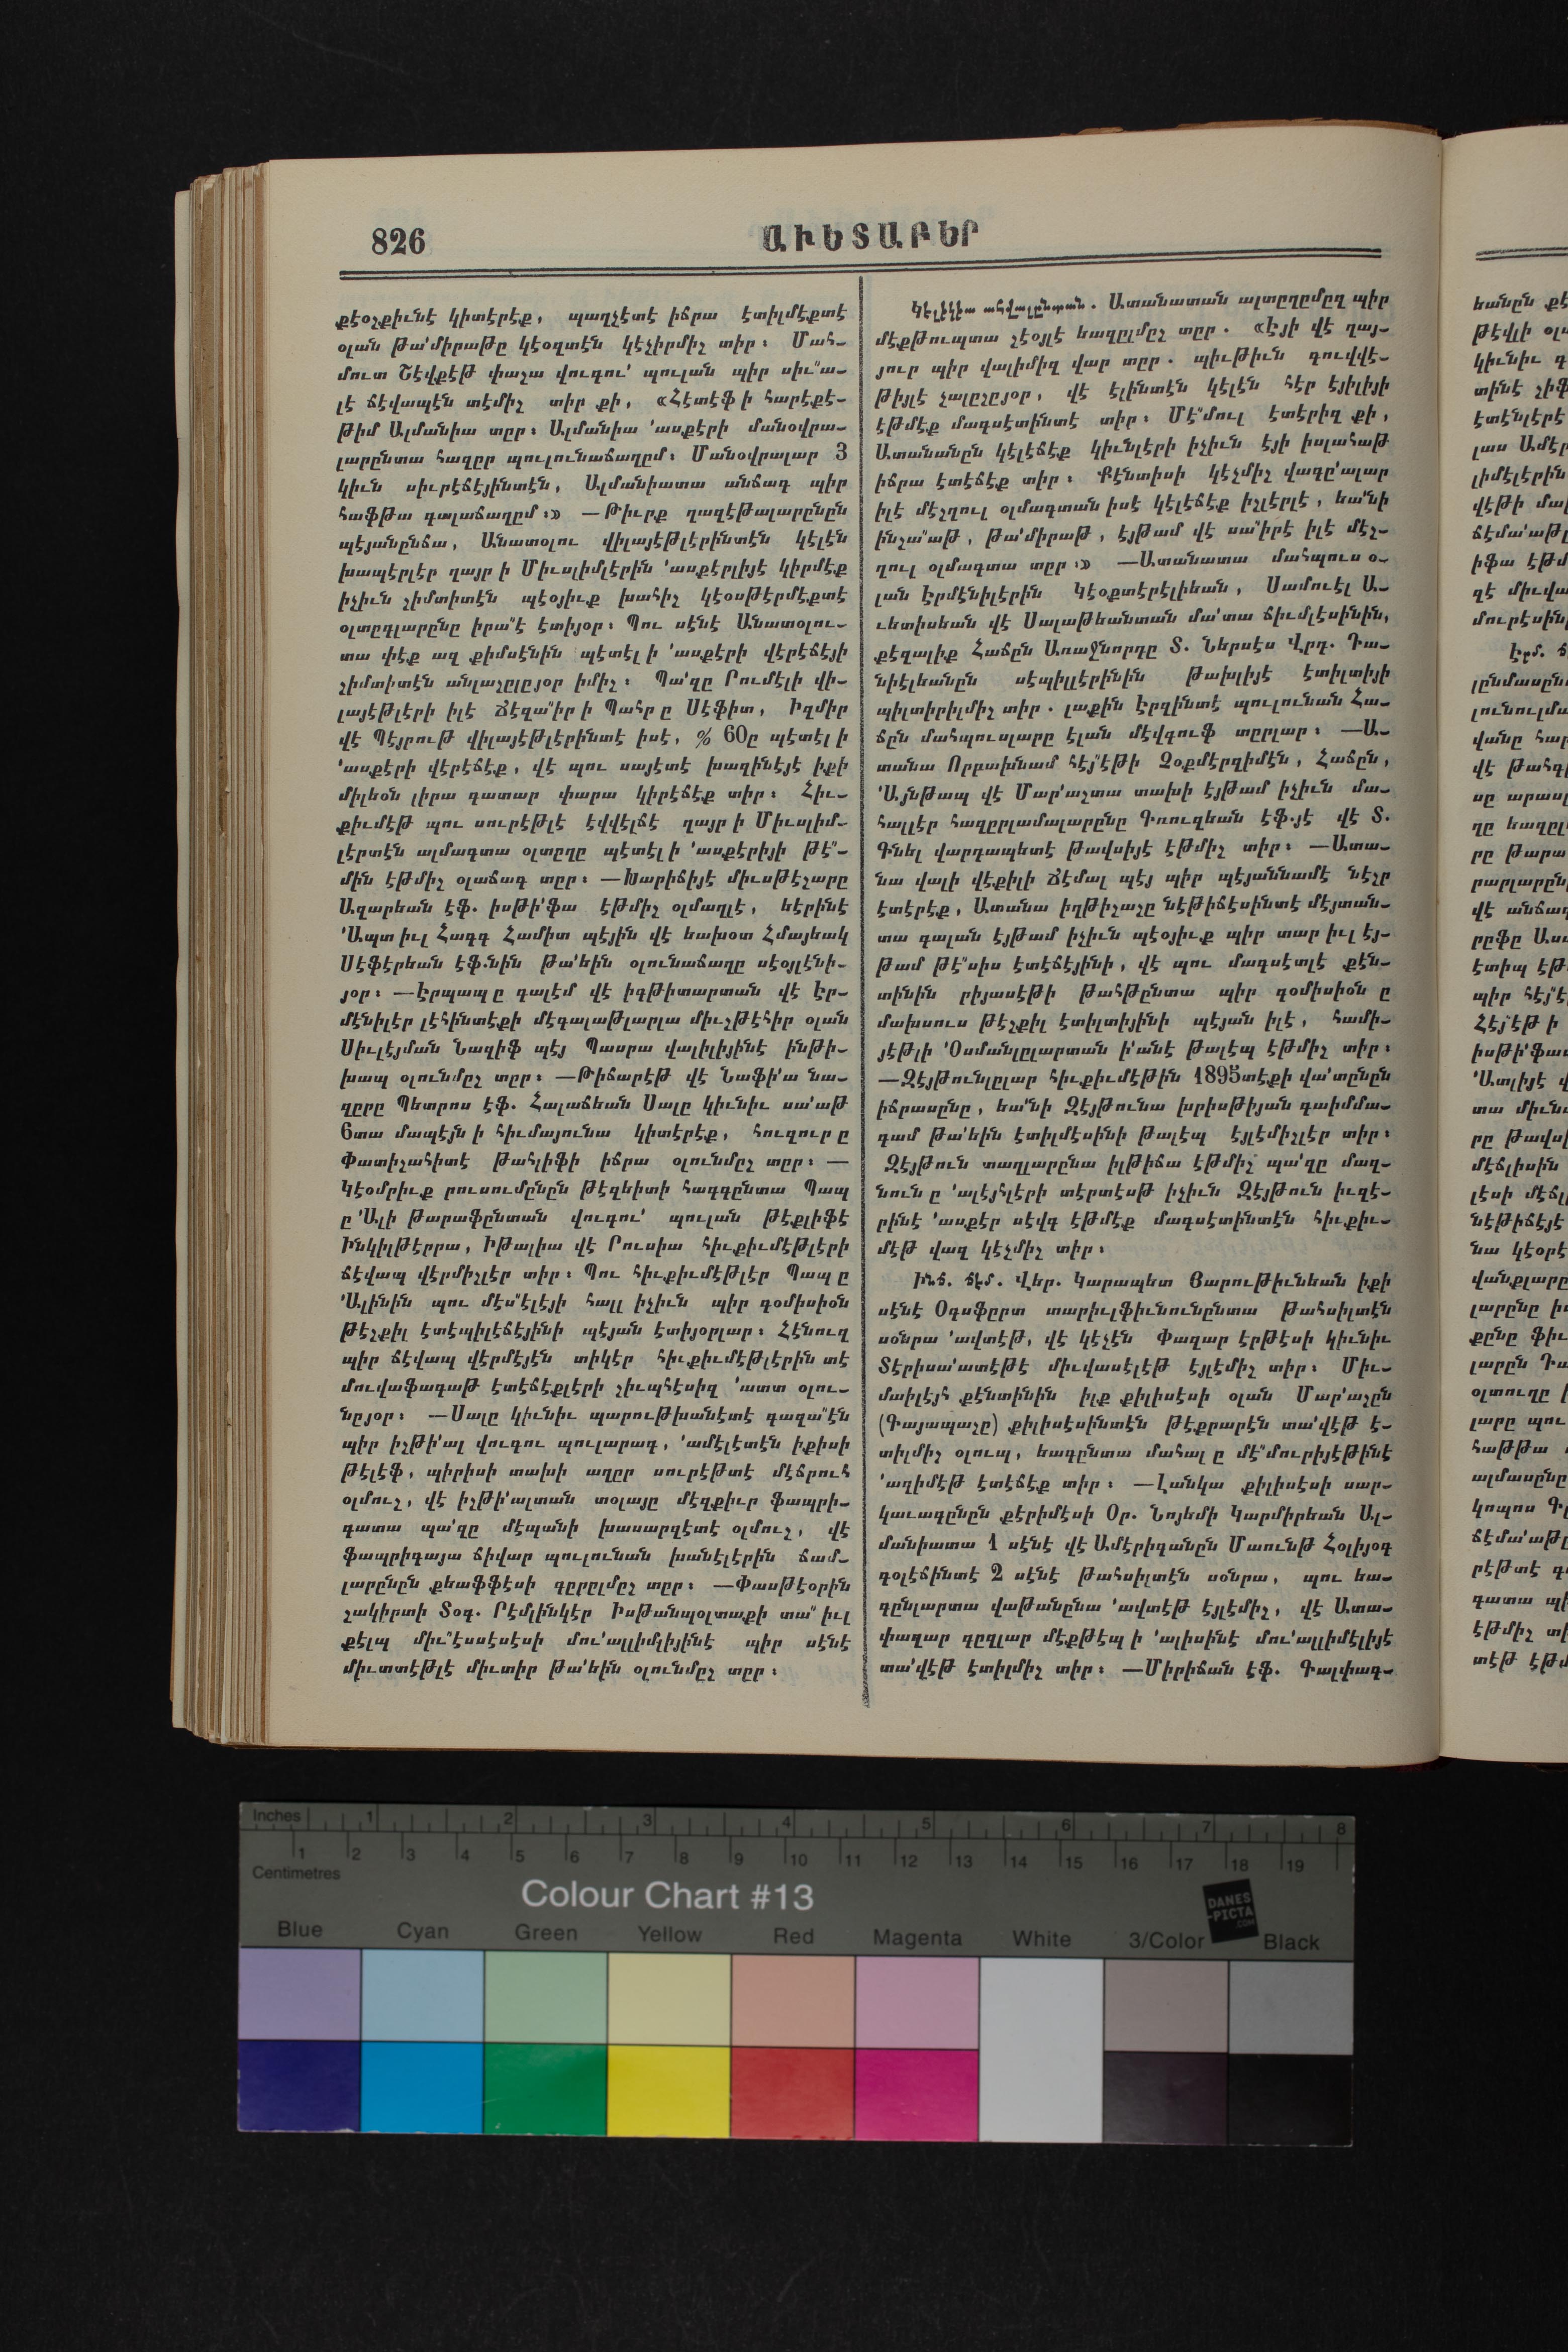 826
ԱՒԵՏԱԲԵՐ
քէօշքիւնէ կիտէրէք, պաղչէտէ իճրա էտիլմէքտէ
օլան թա՛միրաթը կէօզտէն կէչիրմիշ տիր։ Մահ–
մուտ Շէվքէթ փաշա վուգու՛ պուլան պիր սիւ՚՚ա–
լէ ճէվապէն տէմիշ տիր քի, «Հէտէֆ ի հարէքէ–
թիմ Ալմանիա տըր։ Ալմանիա ՚ասքէրի մանօվրա–
լարընտա հազըր պուլունաճաղըմ։ Մանօվրալար 3
կիւն սիւրէճէյինտէն, Ալմանիատա անճագ պիր
հաֆթա գալաճաղըմ։» —Թիւրք ղազէթալարընըն
պէյանընճա, Անատօլու վիլայէթլէրինտէն կէլէն
խապէրլէր ղայր ի Միւսլիմլէրին ՚ասքէրլիյէ կիրմէք
իչիւն շիմտիտէն պէօյիւք խահիշ կէօսթէրմէքտէ
օլտըգլարընը իրա՚՚է էտիյօր։ Պու սէնէ Անատօլու–
տա փէք ազ քիմսէնին պէտէլ ի ՚ասքէրի վէրէճէյի
շիմտիտէն անլաշըլըյօր իմիշ։ Պա՛զը Րումէլի վի–
լայէթլէրի իլէ Ճէզա՚՚իր ի Պահր ը Սէֆիտ, Իզմիր
վէ Պէյրութ վիլայէթլէրինտէ իսէ, % 60ը պէտէլ ի
՚ասքէրի վէրէճէք, վէ պու սայէտէ խազինէյէ իքի
միլեօն լիրա գատար փարա կիրէճէք տիր։ Հիւ–
քիւմէթ պու սուրէթլէ էվվէլճէ ղայր ի Միւսլիմ–
լէրտէն ալմագտա օլտըղը պէտէլ ի ՚ասքէրիյի թէ՚՚–
մին էթմիշ օլաճագ տըր։ —Խարիճիյէ միւսթէշարը
Ազարեան էֆ. իսթի՛ֆա էթմիշ օլմաղլէ, եէրինէ
՚Ապտ իւլ Հագգ Համիտ պէյին վէ եախօտ Հմայեակ
Սէֆէրեան էֆ.նին թա՛եին օլունաճաղը սէօյլէնի–
յօր։ —Էրպապ ը գալէմ վէ իգթիտարտան վէ Էր–
մէնիլէր լէհինտէքի մէգալաթլարլա միւշթէհիր օլան
Սիւլէյման Նազիֆ պէյ Պասրա վալիլիյինէ ինթի–
խապ օլունմըշ տըր։ —Թիճարէթ վէ Նաֆի՛ա նա–
զըրը Պետրոս էֆ. Հալաճեան Սալը կիւնիւ սա՛աթ
6տա մապէյն ի հիւմայունա կիտէրէք, հուզուր ը
Փատիշահիտէ թահլիֆի իճրա օլունմըշ տըր։ —
Կէօմրիւք րուսումընըն թէզեիտի հագգընտա Պապ
ը ՚Ալի թարաֆընտան վուգու՛ պուլան թէքլիֆէ
Ինկիլթէրրա, Իթալիա վէ Րուսիա հիւքիւմէթլէրի
ճէվապ վէրմիշլէր տիր։ Պու հիւքիւմէթլէր Պապ ը
՚Ալինին պու մէս՚՚էլէյի հալլ իչիւն պիր գօմիսիօն
թէշքիլ էտէպիլէճէյինի պէյան էտիյօրլար։ Հէնուզ
պիր ճէվապ վէրմէյէն տիկէր հիւքիւմէթլէրին տէ
մուվաֆագաթ էտէճէքլէրի շիւպհէսիզ ՚ատտ օլու–
նըյօր։ —Սալը կիւնիւ պարութխանէտէ գազա՚՚էն
պիր իշթի՛ալ վուգու պուլարագ, ՚ամէլէտէն իքիսի
թէլէֆ, պիրիսի տախի աղըր սուրէթտէ մէճրուհ
օլմուշ, վէ իշթի՛ալտան տօլայը մէզքիւր ֆապրի–
գատա պա՛զը մէպանի խասարզէտէ օլմուշ, վէ
ֆապրիգայա ճիվար պուլունան խանէլէրին ճամ–
լարընըն քեաֆֆէսի գըրըլմըշ տըր։ —Փասթէօրին
շակիրտի Տօգ. Րէմլինկէր Իսթանպօլտաքի տա՚՚ իւլ
քէլպ միւ՚՚էսսէսէսի մու՛ալլիմլիյինէ պիր սէնէ
միւտտէթլէ միւտիր թա՛եին օլունմըշ տըր։
Կելէկեա ահվալընտան. Ատանատան ալտըղըմըզ պիր
մէքթուպտա շէօյլէ եազըլմըշ տըր. «Էյի վէ ղայ–
յուր պիր վալիմիզ վար տըր. պիւթիւն գուվվէ–
թիյլէ չալըշըյօր, վէ էլինտէն կէլէն հէր էյիլիյի
էթմէք մագսէտինտէ տիր։ Մէ՚՚մուլ էտէրիզ քի,
Ատանանըն կէլէճէք կիւնլէրի իչիւն էյի իսլահաթ
իճրա էտէճէք տիր։ Քէնտիսի կէչմիշ վագը՛ալար
իլէ մէշղուլ օլմագտան իսէ կէլէճէք իշլէրլէ, եա՛նի
ինշա՚՚աթ, թա՛միրաթ, էյթամ վէ սա՚՚իրէ իլէ մէշ–
ղուլ օլմագտա տըր։» —Ատանատա մահպուս օ–
լան Էրմէնիլէրին Կէօքտէրէլիեան, Սամուէլ Ա–
ւետիսեան վէ Սալաթեանտան մա՛տա ճիւմլէսինին,
քէզալիք Հաճըն Առաջնորդը Տ. Ներսէս Վրդ. Դա–
նիէլեանըն սէպիլլէրինին թախլիյէ էտիլտիյի
պիլտիրիլմիշ տիր. լաքին Էրզինտէ պուլունան Հա–
ճըն մահպուսլարը էլան մէվգուֆ տըրլար։ —Ա–
տանա Որբախնամ հէյ՚՚էթի Չօքմէրզիմէն, Հաճըն,
՚Այնթապ վէ Մար՛աշտա տախի էյթամ իչիւն մա–
հալլէր հազըրլամալարընը Գռուզեան էֆ.յէ վէ Տ.
Գնել վարդապետէ թավսիյէ էթմիշ տիր։ —Ատա–
նա վալի վէքիլի Ճէմալ պէյ պիր պէյաննամէ նէշր
էտէրէք, Ատանա իղթիշաշը նէթիճէսինտէ մէյտան–
տա գալան էյթամ իչիւն պէօյիւք պիր տար իւլ էյ–
թամ թէ՚՚սիս էտէճէյինի, վէ պու մագսէտլէ քէն–
տինին րիյասէթի թահթընտա պիր գօմիսիօն ը
մախսուս թէշքիլ էտիլտիյինի պէյան իլէ, համի–
յէթլի ՚Օսմանլըլարտան ի՛անէ թալէպ էթմիշ տիր։
—Զէյթունլըլար հիւքիւմէթին 1895տէքի վա՛տընըն
իճրասընը, եա՛նի Զէյթունա խրիսթիյան գաիմմա–
գամ թա՛եին էտիլմէսինի թալէպ էյլէմիշլէր տիր։
Զէյթուն տաղլարընա իլթիճա էթմիշ պա՛զը մազ–
նուն ը ՚ալէյհլէրի տէրտէսթ իչիւն Զէյթուն իւզէ–
րինէ ՚ասքէր սէվգ էթմէք մագսէտինտէն հիւքիւ–
մէթ վազ կէչմիշ տիր։
Ինճ. ճեմ. Վեր. Կարապետ Յարութիւնեան իքի
սէնէ Օգսֆըրտ տարիւլֆիւնունընտա թահսիլտէն
սօնրա ՚ավտէթ, վէ կէչէն Փազար էրթէսի կիւնիւ
Տէրիսա՛ատէթէ միւվասէլէթ էյլէմիշ տիր։ Միւ–
մաիլէյհ քէնտինին իլք քիլիսէսի օլան Մար՛աշըն
(Գայապաշը) քիլիսէսինտէն թէքրարէն տա՛վէթ է–
տիլմիշ օլուպ, եագընտա մահալ ը մէ՚՚մուրիյէթինէ
՚ազիմէթ էտէճէք տիր։ —Լանկա քիլիսէսի սար–
կաւագընըն քէրիմէսի Օր. Նոյեմի Կարմիրեան Ալ–
մանիատա 1 սէնէ վէ Ամէրիգանըն Մաունթ Հօլիյօգ
գօլէճինտէ 2 սէնէ թահսիլտէն սօնրա, պու եա–
գընլարտա վաթանընա ՚ավտէթ էյլէմիշ, վէ Ատա–
փազար գըզլար մէքթէպ ի ՚ալիսինէ մու՛ալլիմէլիյէ
տա՛վէթ էտիլմիշ տիր։ —Միրիճան էֆ. Գալփագ–